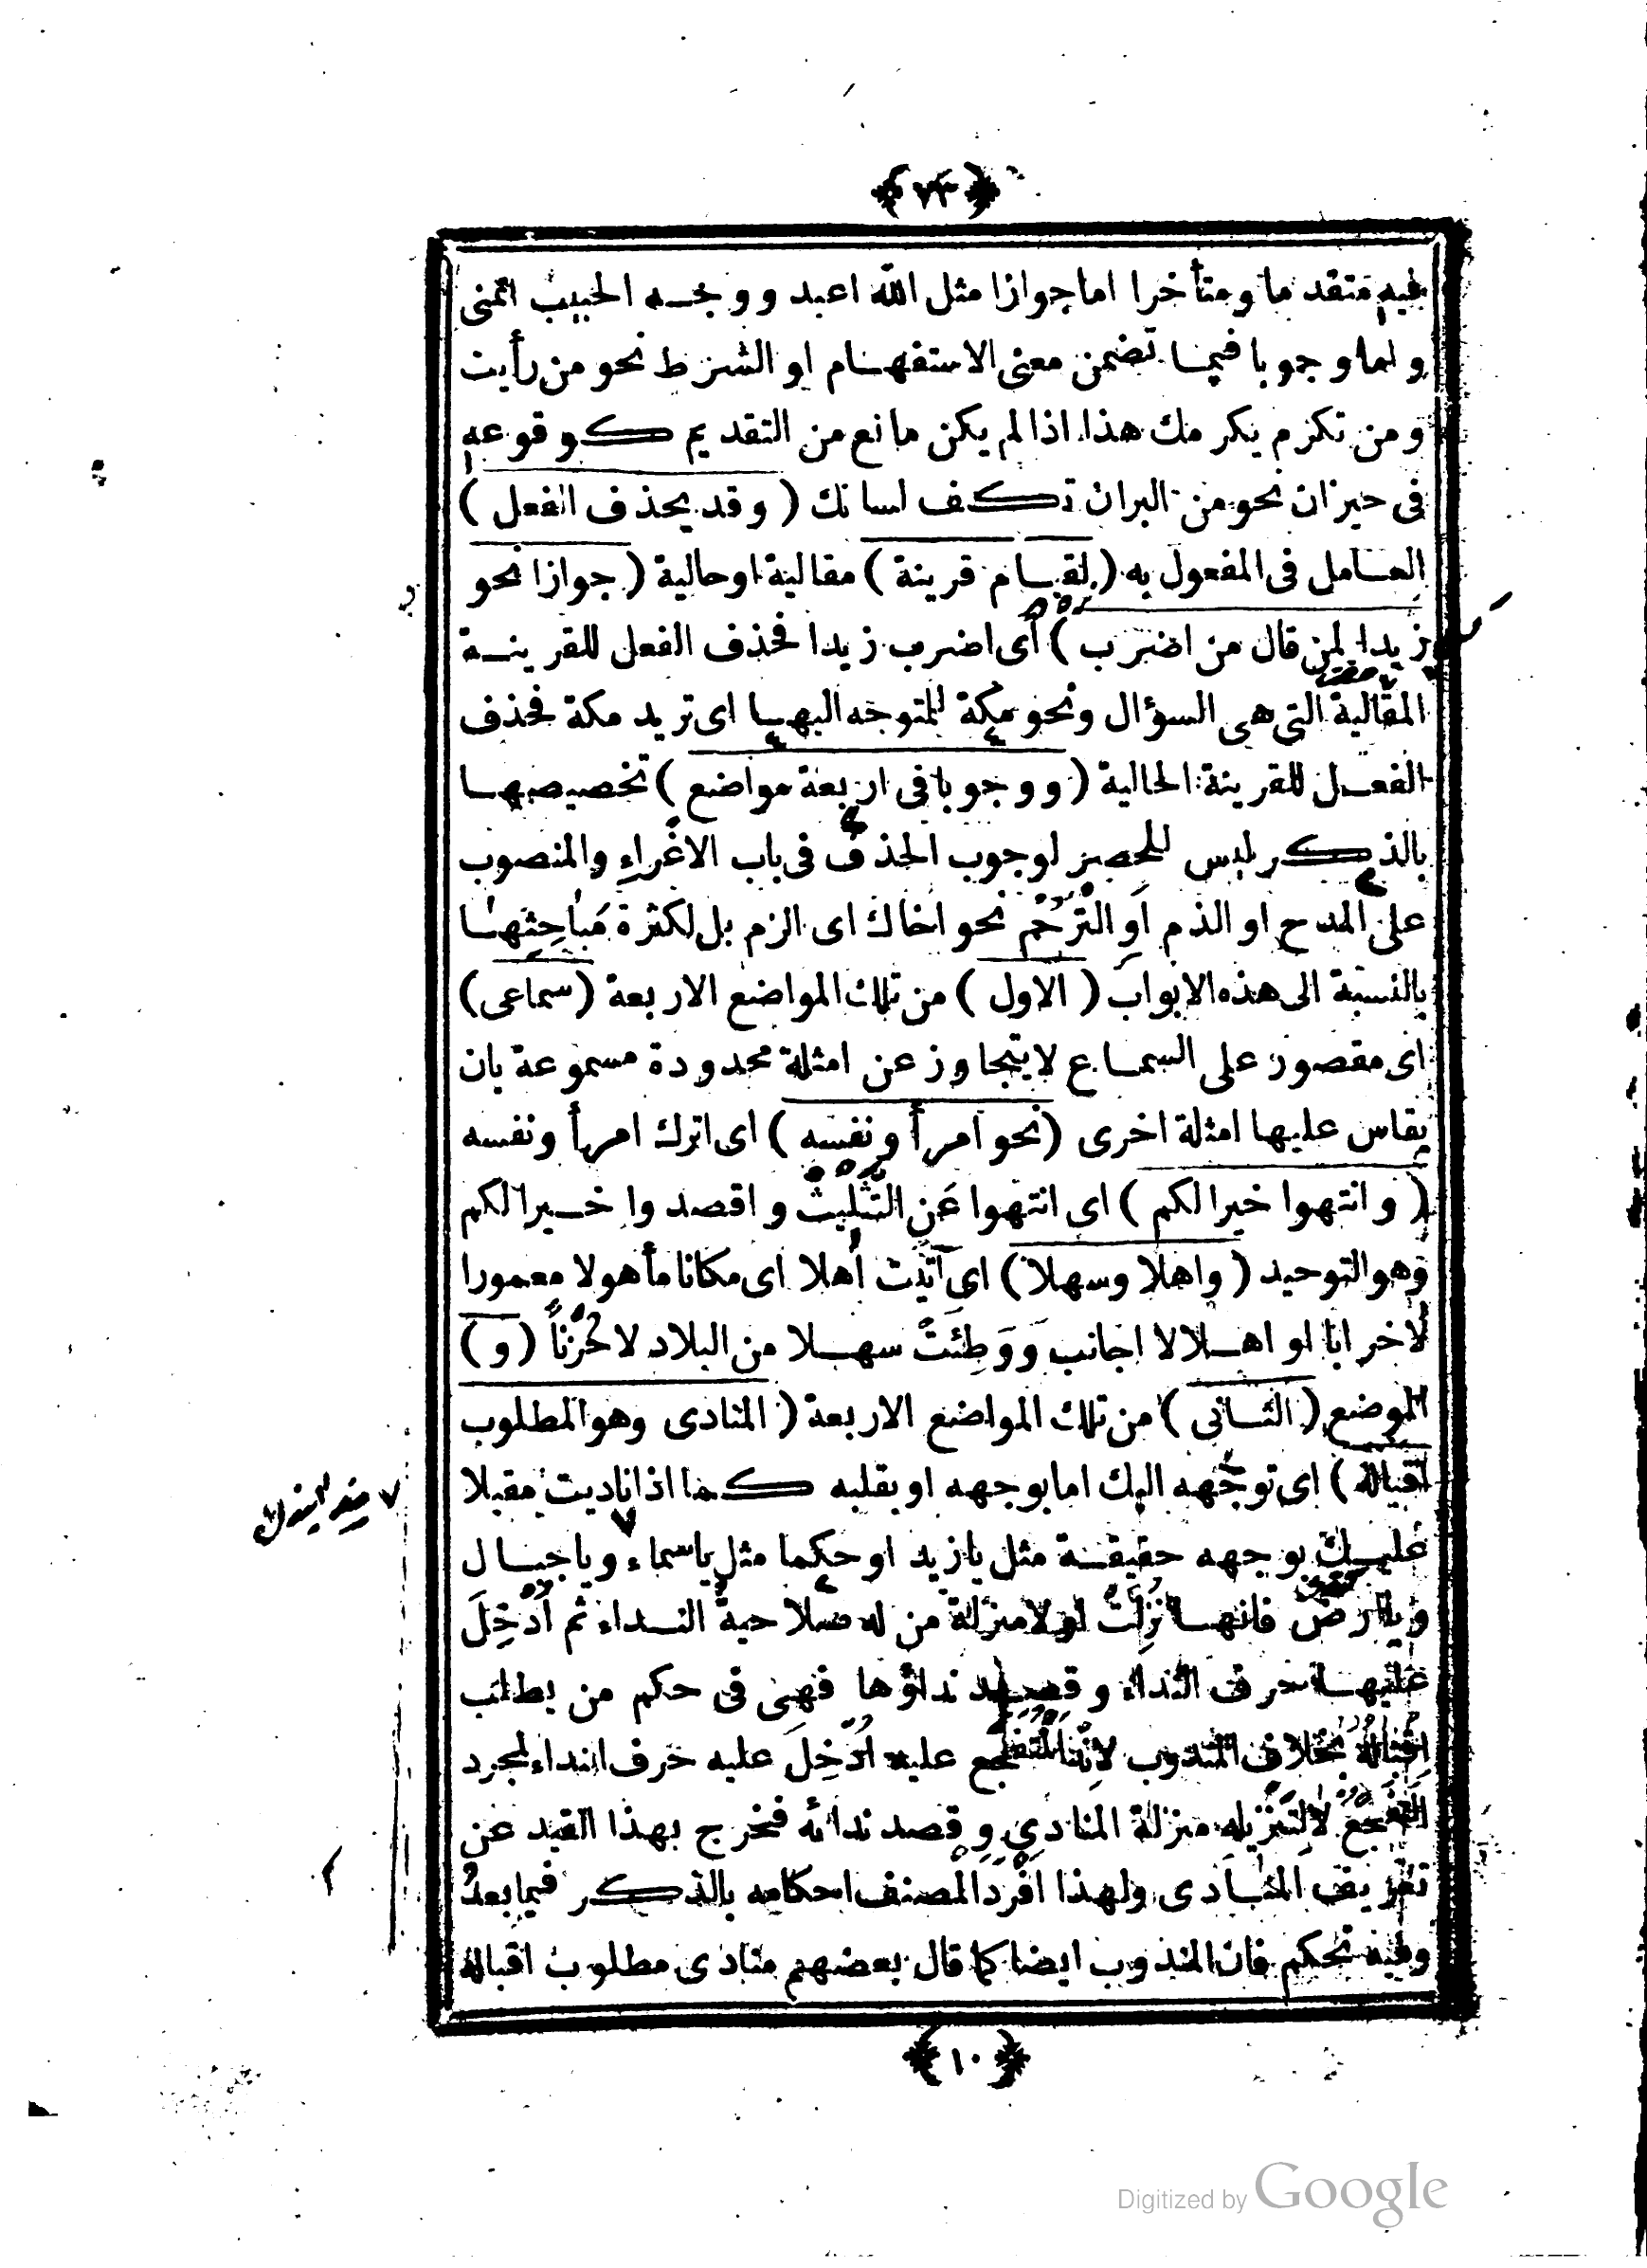 ﴿٧٣﴾
فيه متقدما ومتأخرا اما جوازا مثل الله اعبد ووجه الحبيب اتمنى
واما وجوبا فيما تضمن معنى الاستفهام او الشرط نحو من رأيت
ومن تكرم يكرمك هذا اذا لم يكن مانع من التقديم كوقوعه
فى حيز ان نحو من البر ان تكف لسانك ( وقد يحذف الفعل )
العامل فى المفعول به ( لقيام قرينة ) مقالية او حالية ( جوازا نحو
زيدا لمن قال من اضرب ) أى اضرب زيدا فحذف الفعل للقرينة
المقالية التى هى السؤال ونحو مكة للمتوجه اليها اى تريد مكة فحذف
الفعل للقرينة الحالية ( ووجوبا فى اربعة مواضع ) تخصيصها
بالذكر ليس للحصر لوجوب الحذف فى باب الاغراء والمنصوب
على المدح او الذم او الترحم نحو اخاك اى الزم بل لكثرة مباحثها
بالنسبة الى هذه الابواب ( الاول ) من تلك المواضع الاربعة ( سماعى )
اى مقصور على السماع لا يتجاوز عن امثلة محدودة مسموعة بان
يقاس عليها امثلة اخرى ( نحو امرأ ونفسه ) اى اترك امرأ ونفسه
( وانتهوا خيرا لكم ) اى انتهوا عَنِ التثليث واقصدوا خيرا لكم
وهو التوحيد ( واهلا وسهلا ) اى أتيت أهلا اى مكانا مأهولا معمورا
لاخرابا او اهلا لا اجانب وَوَطِئتَ سهلا من البلاد لا حُزْناً ( و )
الموضع ( الثانى ) من تلك المواضع الاربعة ( المنادى وهو المطلوب
اقباله ) اى توجّهه اليك اما بوجهه او بقلبه كما اذا ناديت مقبلا
عليك بوجهه حقيقة مثل يا زيد او حكما مثل يا سماء ويا جبال
ويا ارض فانها نُزِلَتْ اولا منزلة من له صلاحية النداء ثم اُدْخِلَ
عليها حرف النداء وقصد نداؤها فهى فى حكم من يطلب
اِقبالُهُ بخلاف المندوب لانّه المتفجع عليه اُدْخِلَ عليه حرف النداء لمجرد
التفجّع لا لتنزيله منزلة المنادى وقصد ندائه فخرج بهذا القيد عن
تعريف المنادى ولهذا افْرَدَ المصنف احكامه بالذكر فيما بعدُ
وفيه تحكم فان المندوب ايضا كما قال بعضهم منادى مطلوب اقباله
﴿١٠﴾
Digitized by Google